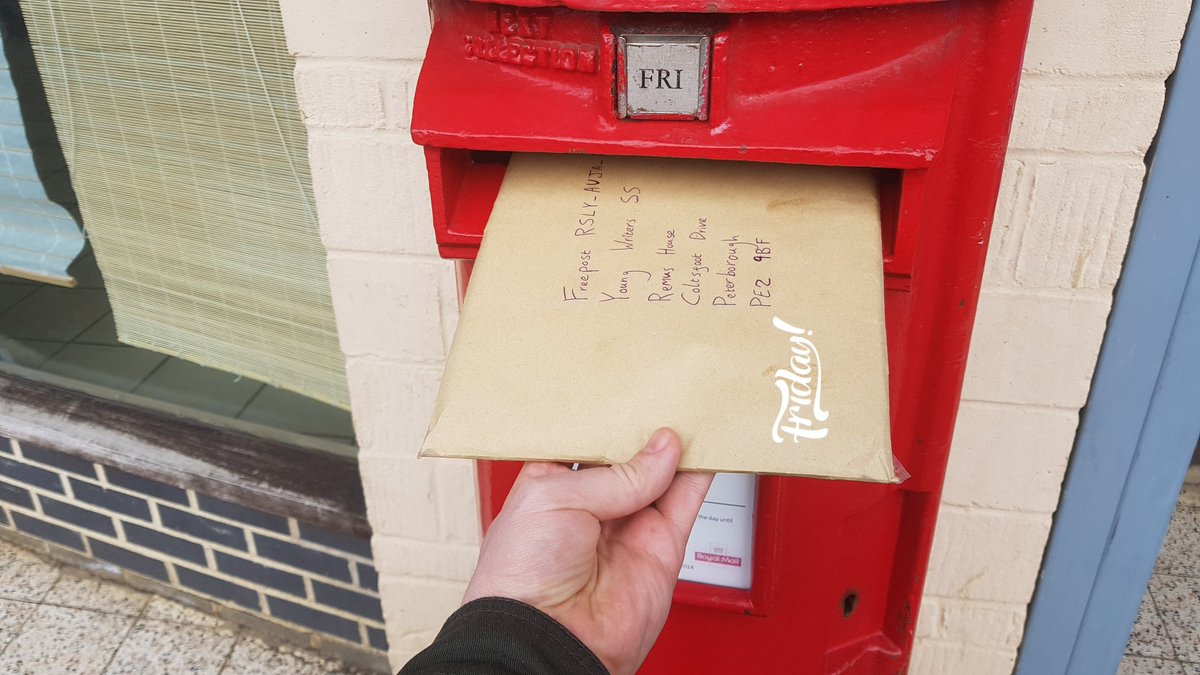 NEXT
COLLECTION
FRI
Freepost RSLY-AVJA-
Young Writers SS
Remus House
Coltsfoot Drive
Peterborough
PE2 9BF
Friday!
the day until
Royal Mail